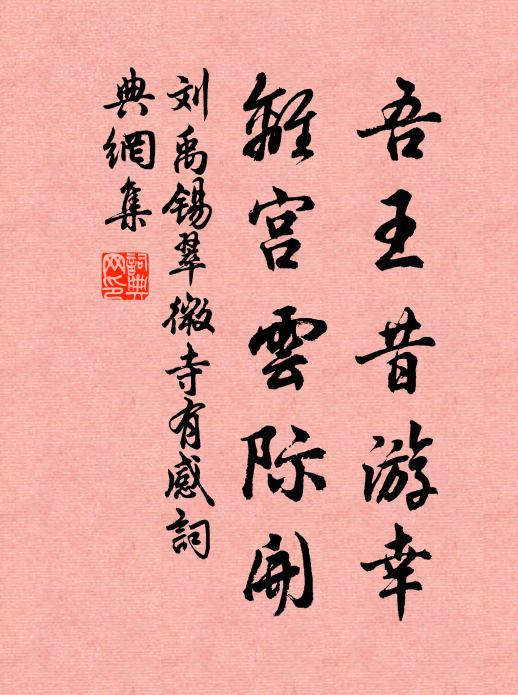 吾王昔游幸
離宫雲际開
刘禹锡翠微寺有感詞
典網集
詞典网印